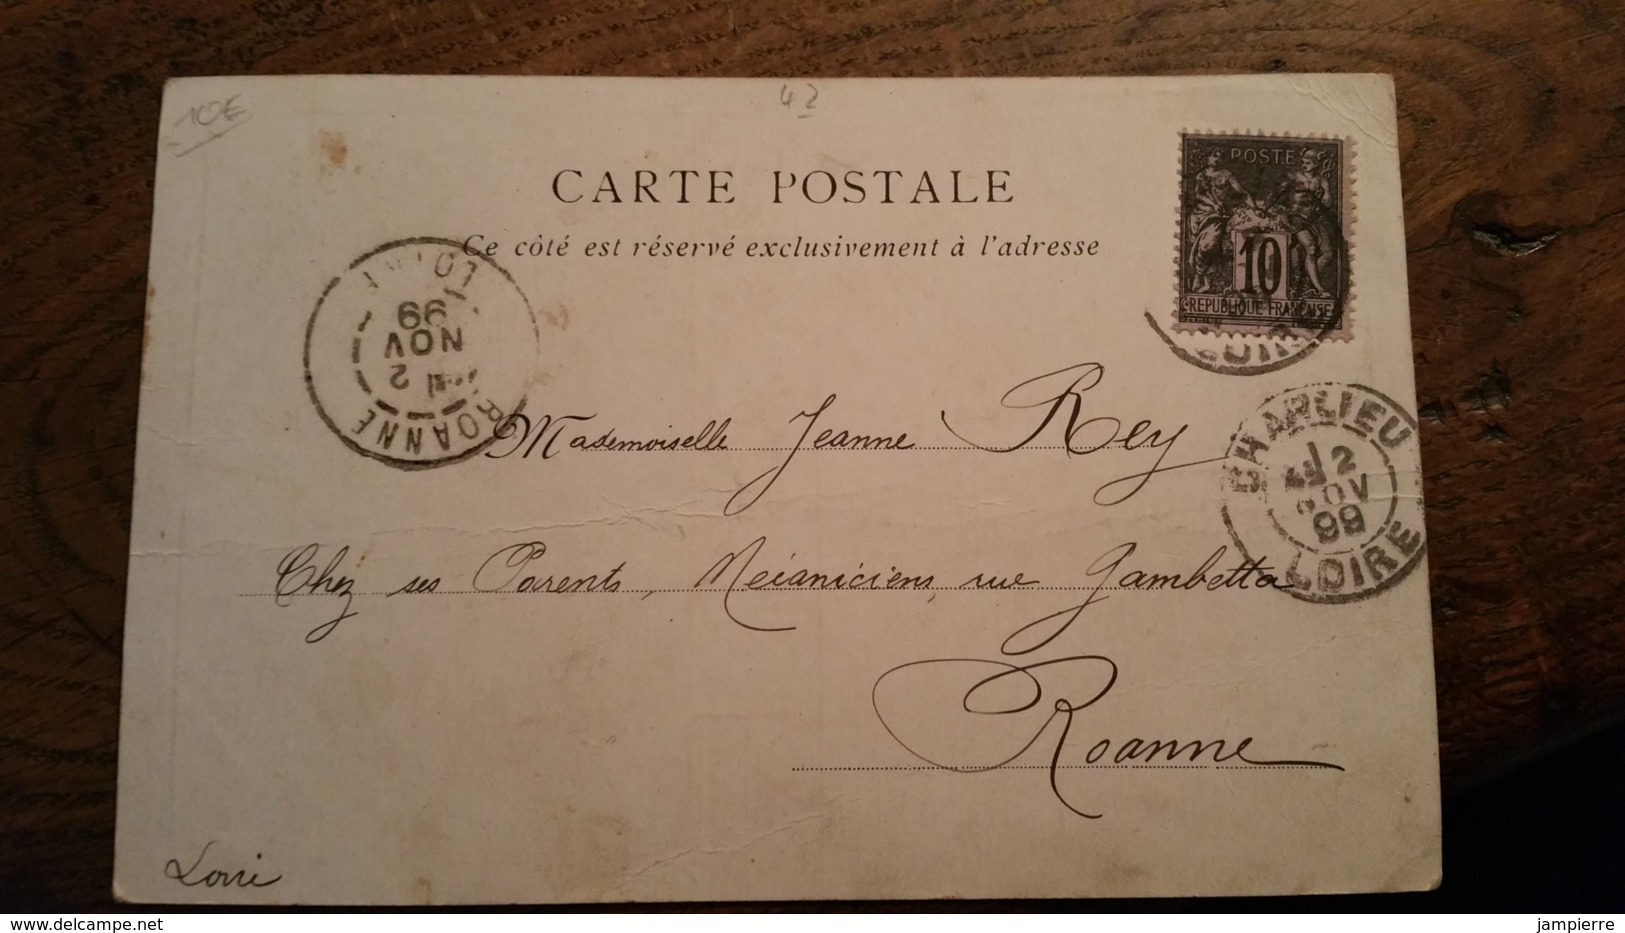 10€
42
CARTE POSTALE
Ce côté est réservé exclusivement à l'adresse
POSTE
10
REPUBLIQUE FRANÇAISE
LOIRE
ROANNE
2
NOV
99
LOIRE
CHARLIEU
2
NOV
99
LOIRE
Mademoiselle Jeanne Rey
Chez ses Parents, Mécaniciens, rue Gambetta
Roanne
Loire
delcampe.net
jampierre